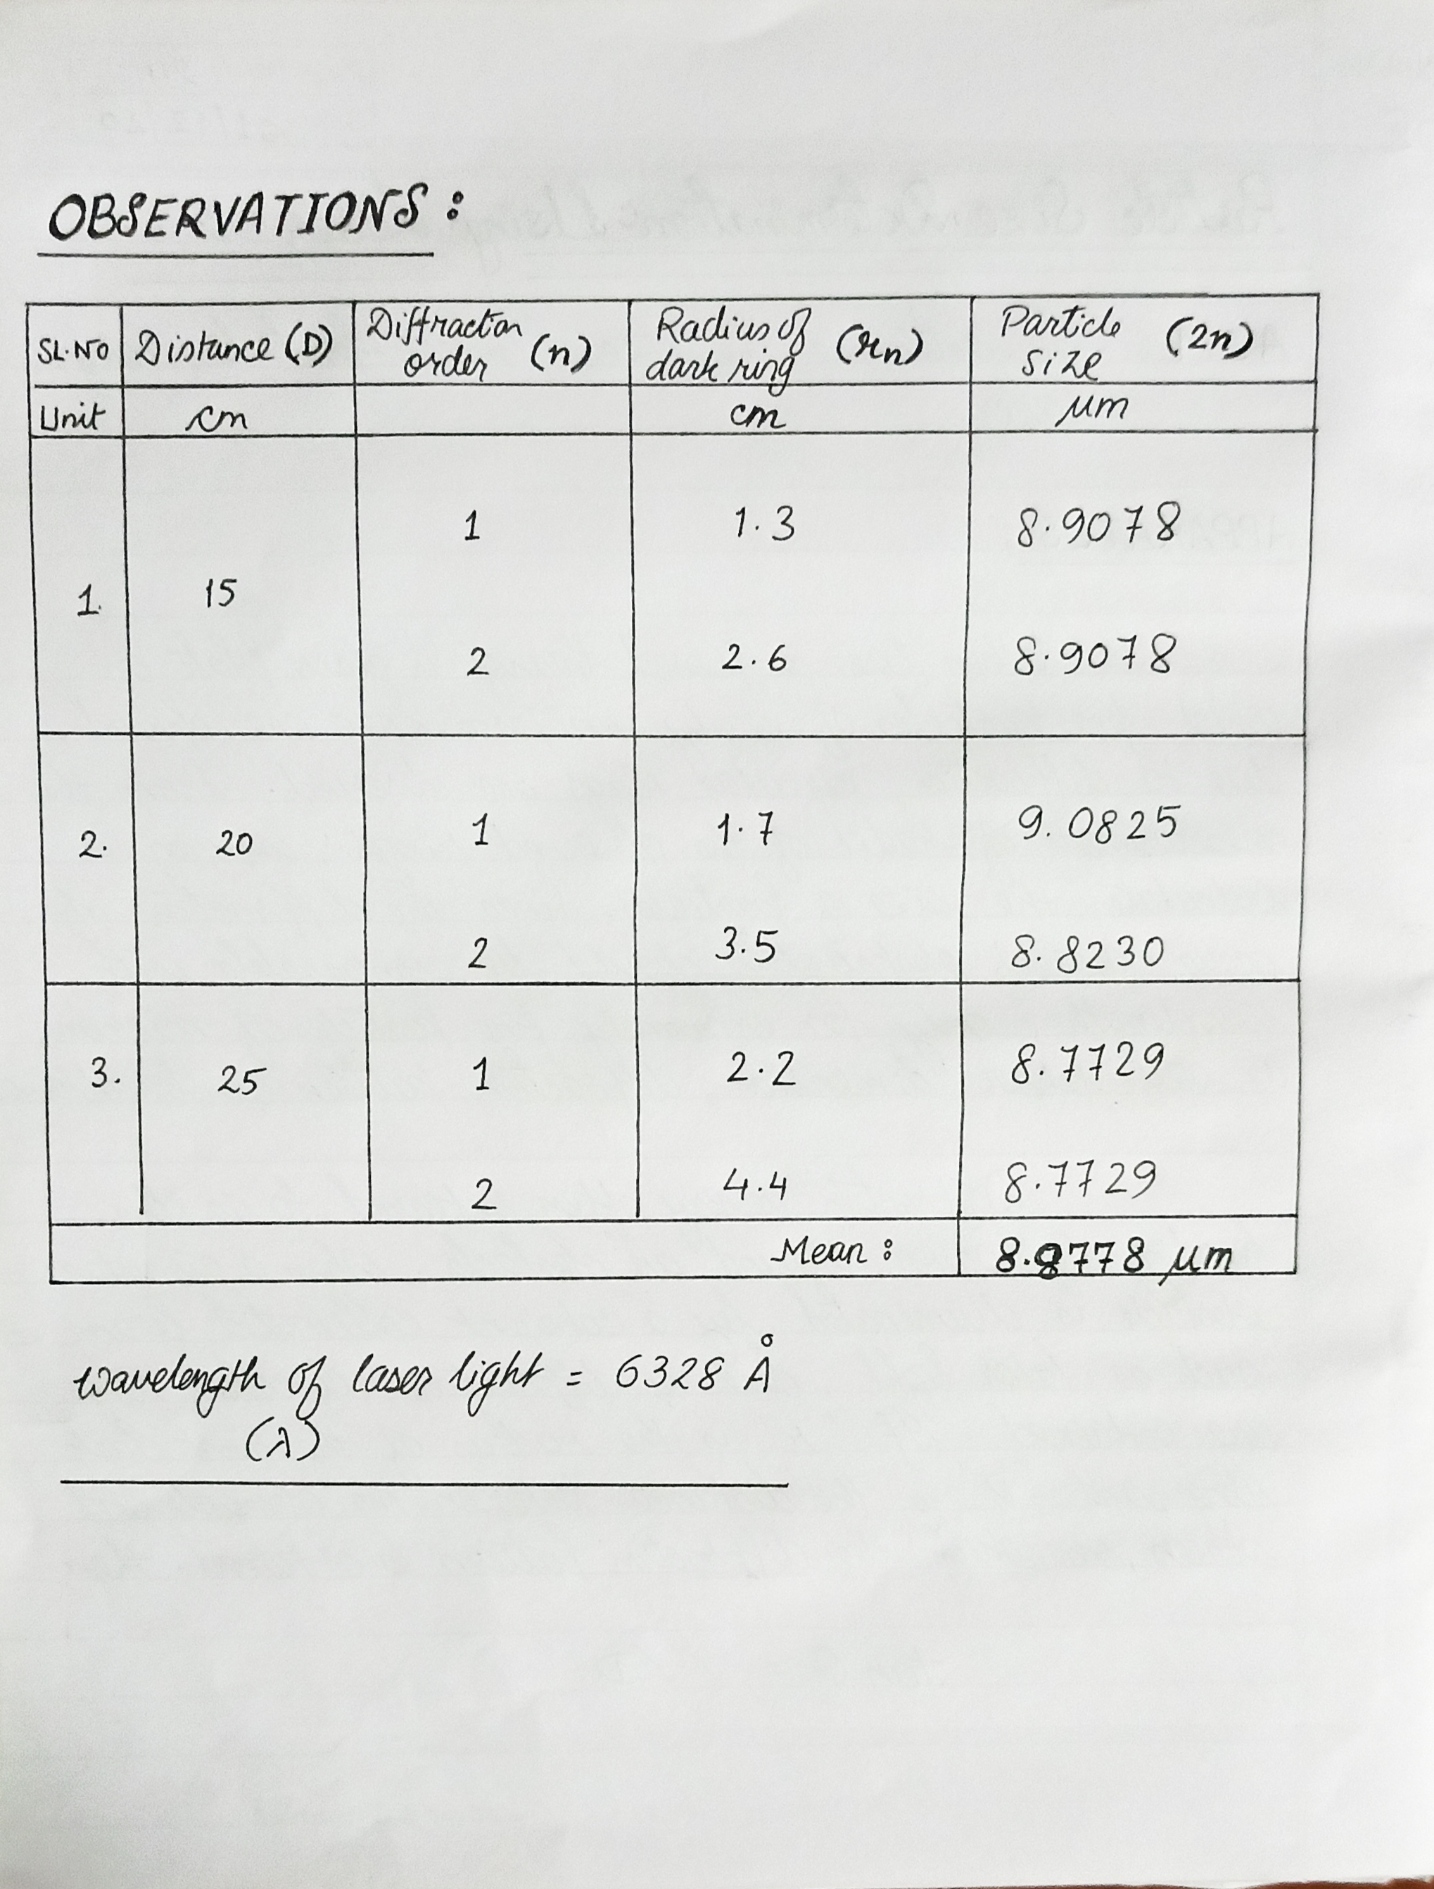 OBSERVATIONS :
SL.NO Distance (D) Diffraction order (n) Radius of dark ring (rn) Particle size (2r)
Unit cm cm μm
1. 15 1 1.3 8.9078
2 2.6 8.9078
2. 20 1 1.7 9.0825
2 3.5 8.8230
3. 25 1 2.2 8.7729
2 4.4 8.7729
Mean : 8.8778 μm
wavelength of laser light = 6328 Å
(λ)